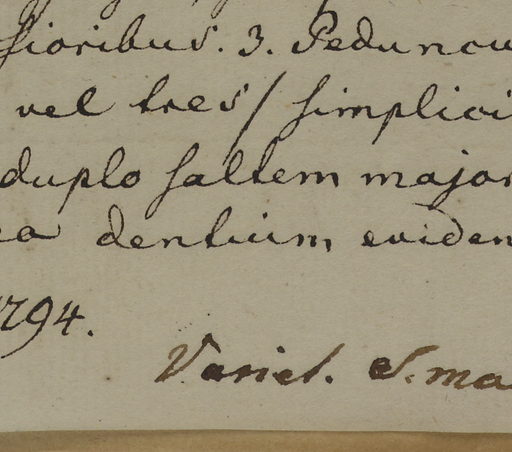 sioribus. 3. Peduncu
vel tres/ simplici
duplo saltem major
ea dentium eviden
1794.
Variet. S. ma